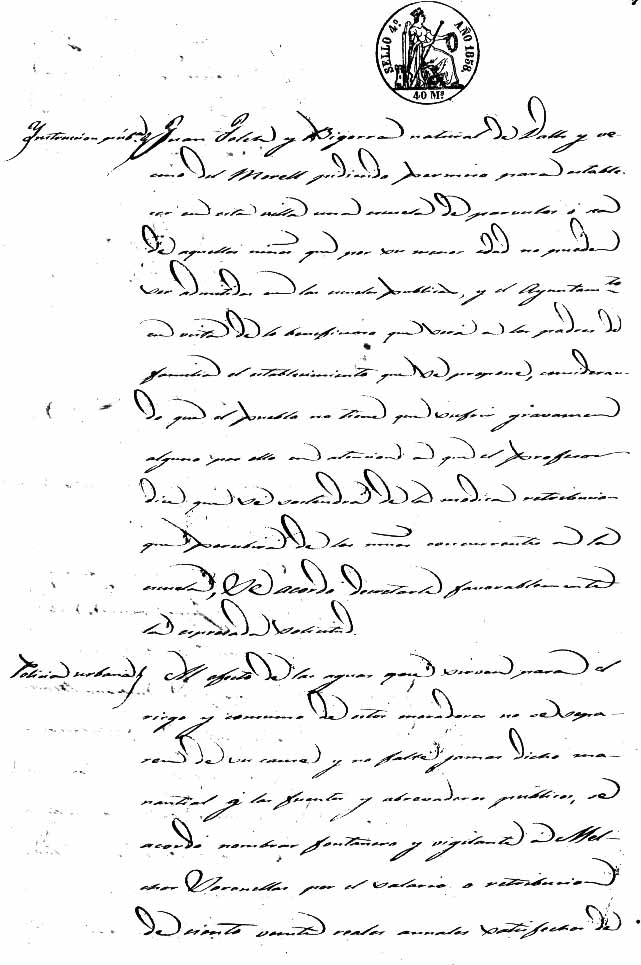 SELLO 4º AÑO 1858.
40 Mˢ
Instruccion púb.ª Juan Soleta y Bigorra natural de Valls y ve-
cino del Morell pidiendo permiso para estable-
cer en esta villa una escuela de parvulos ó sea
de aquellos niños que por su menor edad no pueden
ser admitidos en las escuelas publicas, y el Ayuntamto
en vista de lo beneficioso que será a los padres de
familia el establecimiento que se propone, consideran-
do que el pueblo no tiene que sufrir gravamen
alguno por ello en atencion a que el profesor
dice que se sostendrá de la modica retribucion
que percibirá de los niños concurrentes a la
escuela, Se acordó decretarla favorablemente
la espresada solicitud.
Policia urbana Al efecto de las aguas que sirven para el
riego y consumo de estos moradores no se sepa-
ren de su cauce y no falte jamas dicho ma-
nantial á las fuentes y abrevaderos públicos, se
acordó nombrar fontanero y vigilante á Mel-
chor Voronellas por el salario o retribucion
de ciento veinte reales annales satisfechos de